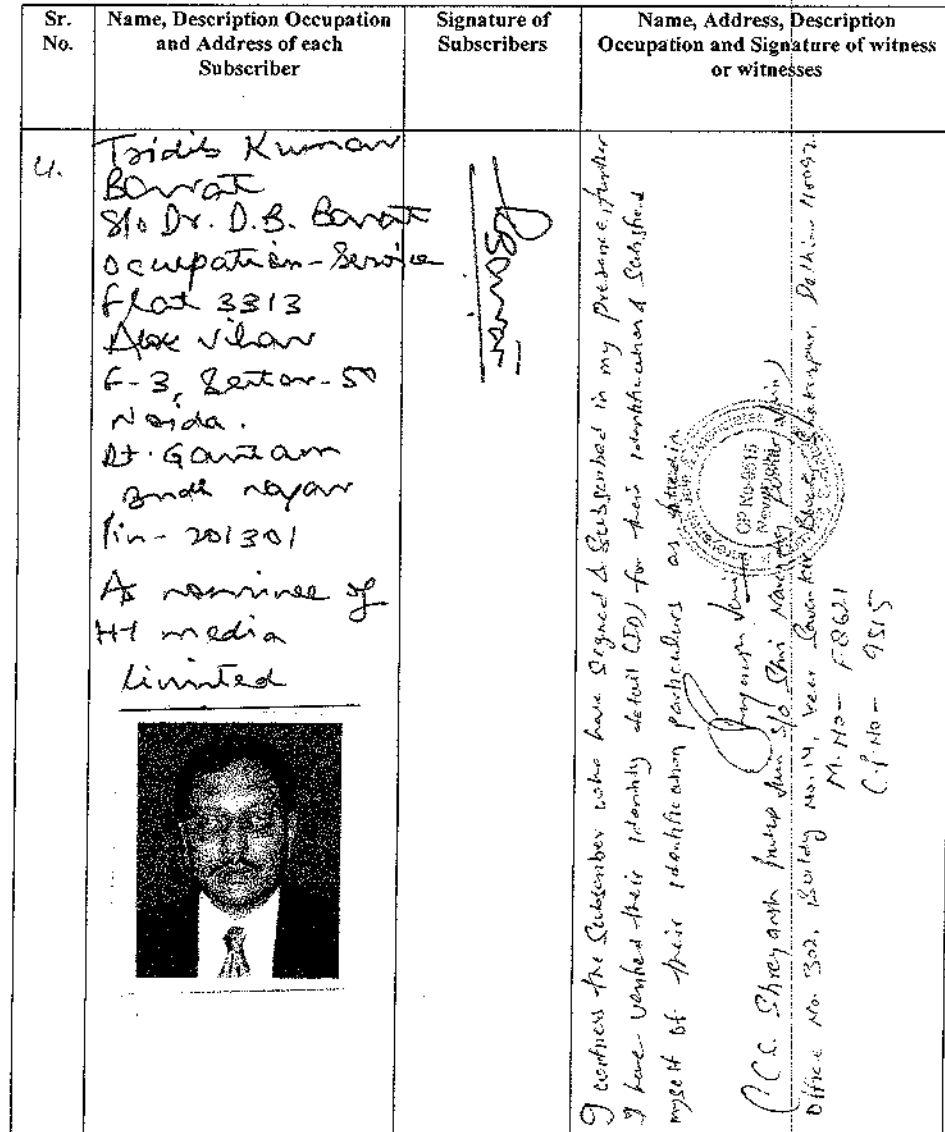 Sr. No.
Name, Description Occupation and Address of each Subscriber
Signature of Subscribers
Name, Address, Description Occupation and Signature of witness or witnesses
4.
Tridib Kumar
Barat
S/o Dr. D.B. Barat
Occupation - Service
Flat 3313
Aloke Vihar
F-3, Sector-50
Noida.
Dt. Gautam
Budh nagar
Pin - 201301
As nominee of
HT media
Limited
Barat
I witness the Subscriber who have Signed & Subscribed in my presence, further
I have verified their identity detail (ID) for their identification & satisfied
myself of their identification particulars as filled in
(C.S. Shreyansh Jain S/o Shri Jain)
Office No. 302, Building No. 14, Veer Savarkar Block, Shakarpur, Delhi - 110092.
M. No - F8621
C.P. No - 9515
CP No-9515